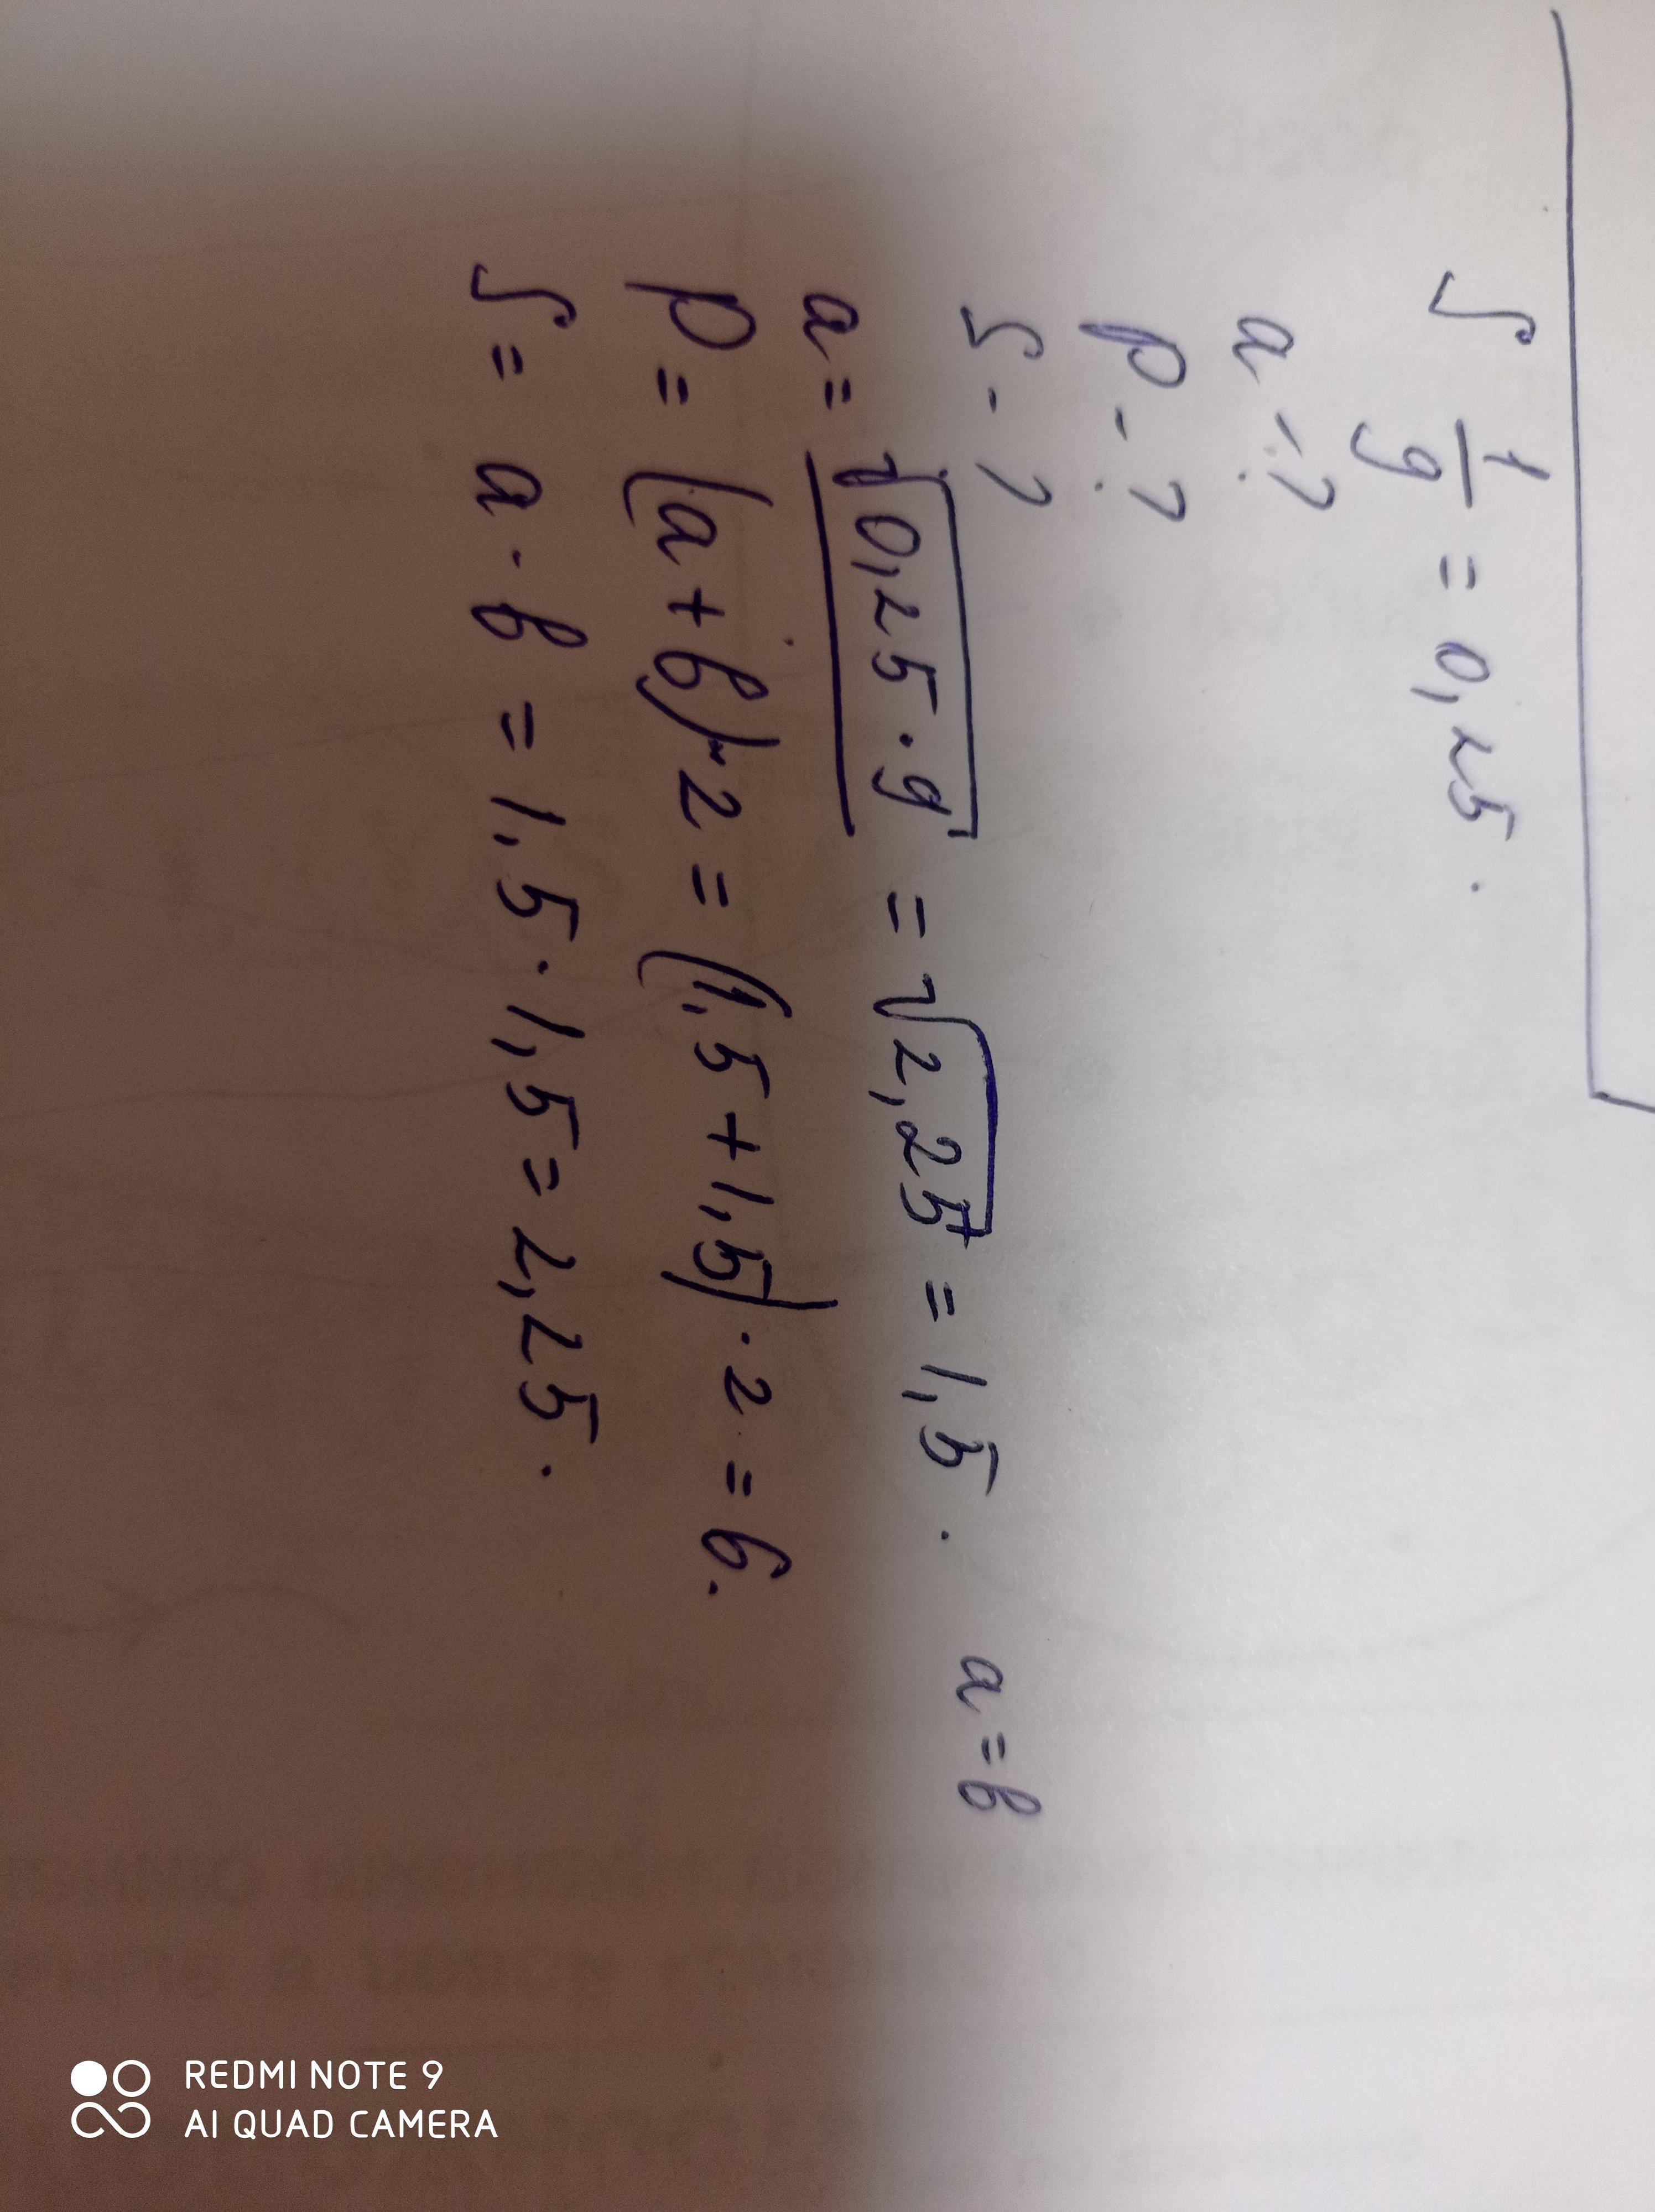 S 1/9 = 0,25.
a - ?
P - ?
S - ?
a = √0,25·9 = √2,25 = 1,5. a = b
P = (a + b)·2 = (1,5 + 1,5)·2 = 6.
S = a · b = 1,5 · 1,5 = 2,25.
REDMI NOTE 9
AI QUAD CAMERA